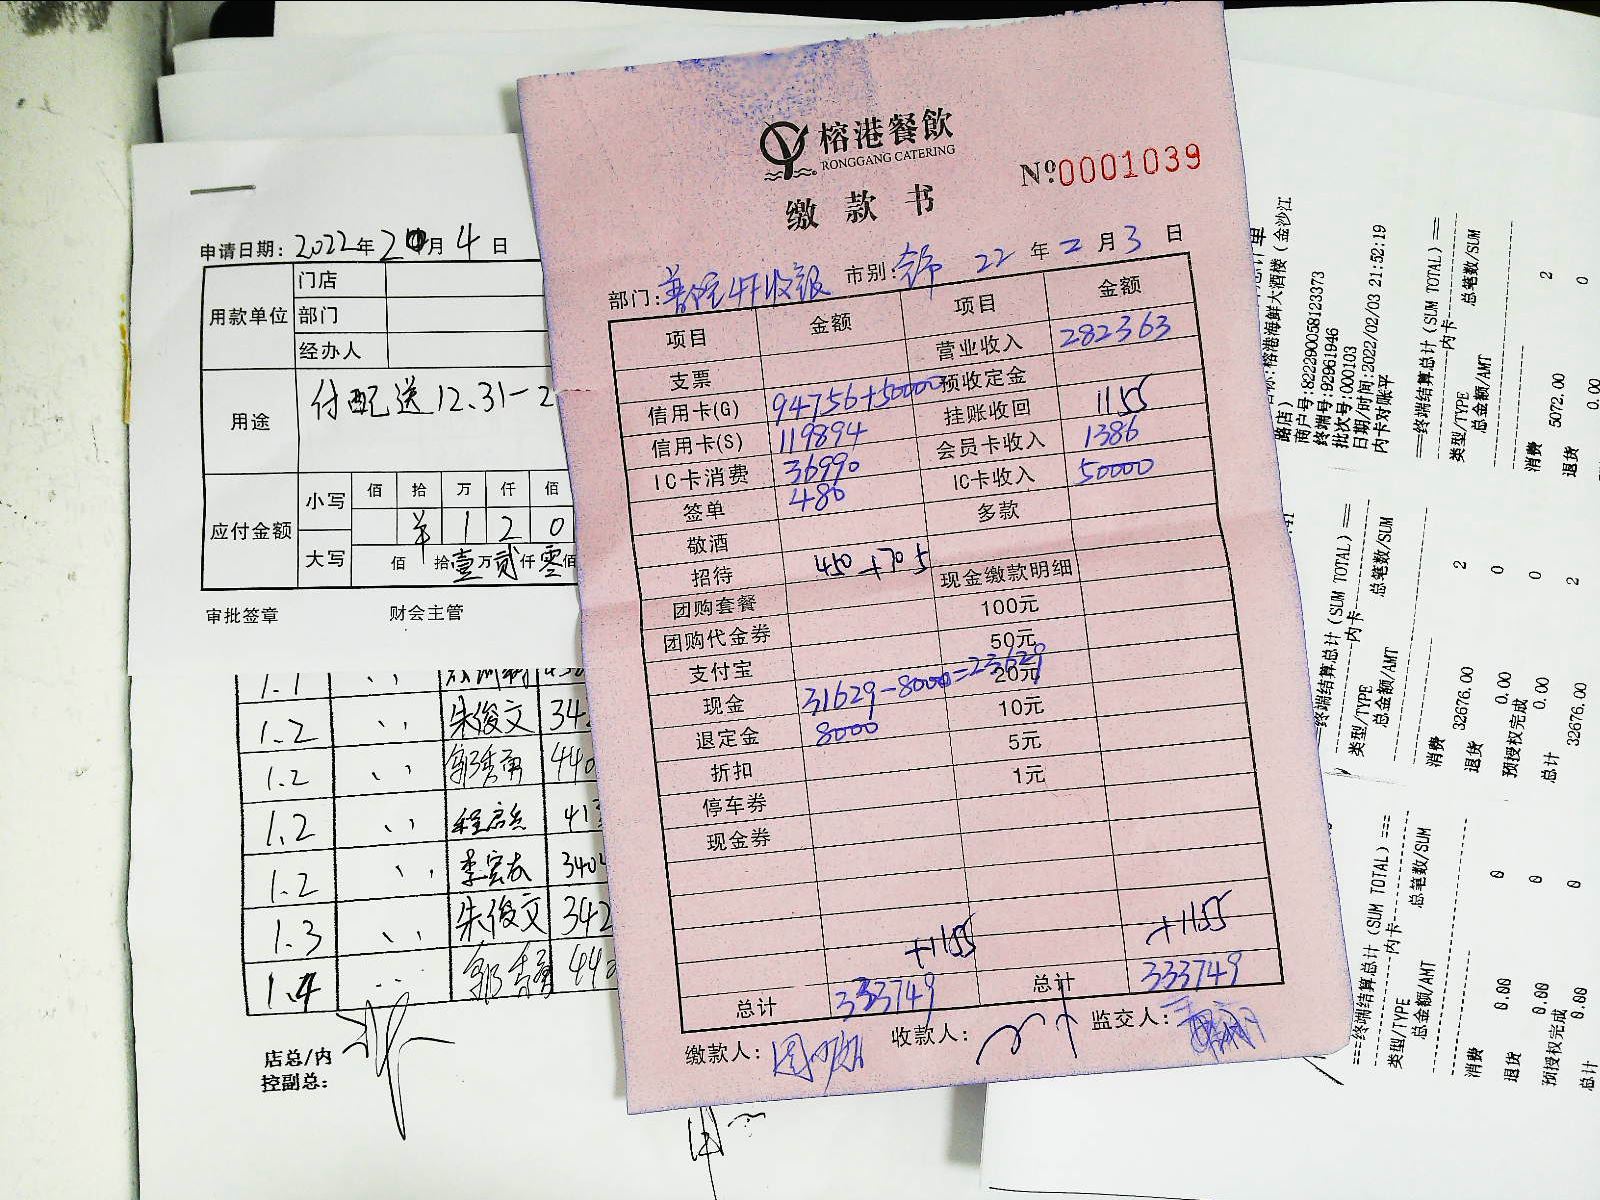 榕港餐飲
RONGGANG CATERING
№0001039
缴款书
部门: 市别: 22 年 二 月 3 日
项目 金额 项目 金额
营业收入 282363
支票 预收定金
信用卡(G) 94756+50000 挂账收回 1155
信用卡(S) 119894 会员卡收入 1386
IC卡消费 36990 IC卡收入 50000
签单 480 多款
敬酒
招待 450+705 现金缴款明细
团购套餐 100元
团购代金券 50元
支付宝 20元
现金 31629-8000=23629 10元
退定金 8000 5元
折扣 1元
停车券
现金券
+1155 +1155
总计 333749 总计 333749
缴款人: 收款人: 监交人:
申请日期: 2022年2月4日
用款单位 门店
部门
经办人
用途 付配送12.31-2
应付金额 小写 佰 拾 万 仟 佰
羊 1 2 0
大写 佰 拾壹万贰仟零佰
审批签章 财会主管
1.1
1.2 朱俊文 342
1.2 440
1.2 413
1.2 李宏友 340
1.3 朱俊文 342
1.4 440
店总/内
控副总:
榕港海鲜大酒楼(金沙江
路店)
商户号:822290058123373
终端号:92961946
批次号:000103
日期/时间:2022/02/03 21:52:19
内卡对账平
===终端结算总计(SUM TOTAL)==
内卡
类型/TYPE 总笔数/SUM
总金额/AMT
消费 2
5072.00
退货 0
0.00
终端结算总计(SUM TOTAL)==
内卡
类型/TYPE 总笔数/SUM
总金额/AMT
消费 2
32676.00
退货 0
0.00
预授权完成 0
0.00
总计 2
32676.00
===终端结算总计(SUM TOTAL)===
内卡
类型/TYPE 总笔数/SUM
总金额/AMT
消费 0
0.00
退货 0
0.00
预授权完成 0
0.00
总计